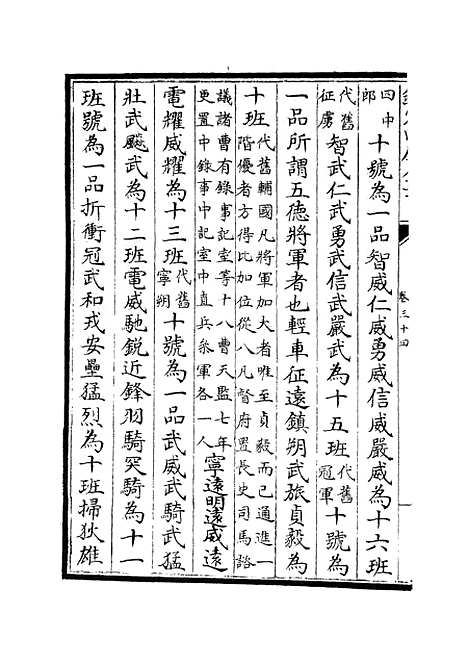 卷三十四
四中
郎
十號為一品智威仁威勇威信威嚴威為十六班
代舊
征虜
智武仁武勇武信武嚴武為十五班
代舊
冠軍
十號為
一品所謂五德將軍者也輕車征遠鎮朔武旅貞毅為
十班
代舊輔國凡將軍加大者唯至貞毅而已通進一
階優者方得比加位從八凡督府置長史司馬諮
議諸曹有錄事記室等十八曹天監七年
更置中錄事中記室中直兵參軍各一人
寧遠明遠威遠
電耀威耀為十三班
代舊
寧朔
十號為一品武威武騎武猛
壯武飈武為十二班電威馳銳近鋒羽騎突騎為十一
班號為一品折衝冠武和戎安壘猛烈為十班掃狄雄